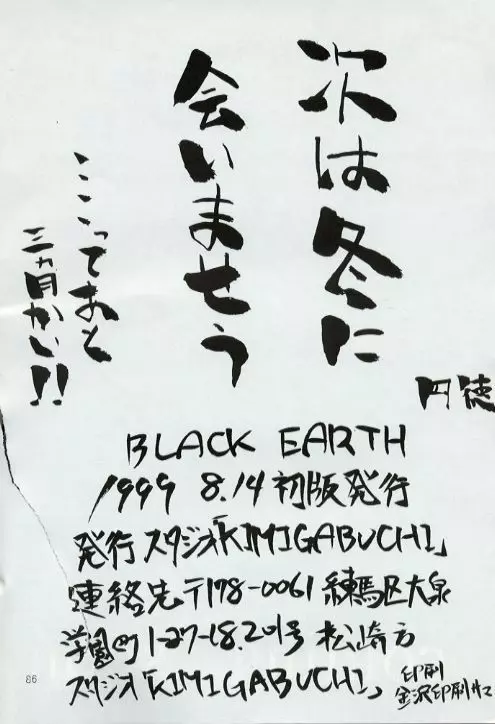 次は冬に
会いませう
ここってあと
三ヵ月かい!!
円徳
BLACK EARTH
1999 8.14 初版発行
発行 スタジオ「KIMIGABUCHI」
連絡先 〒178-0061 練馬区大泉
学園町1-27-18.201号 松崎方
スタジオ「KIMIGABUCHI」
印刷
金沢印刷サービス
86